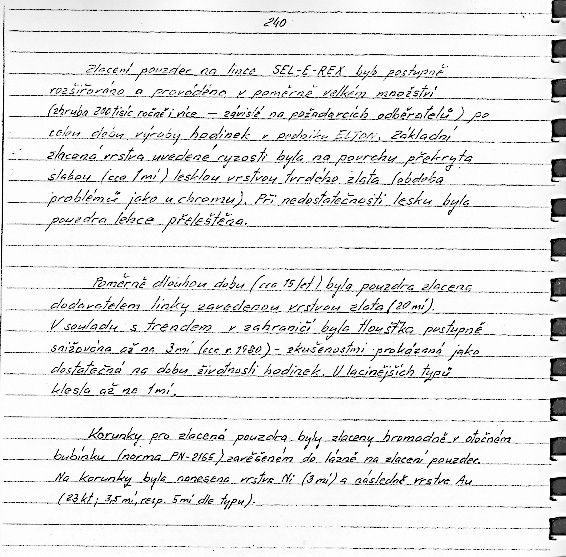 240
Zlacení pouzder na lince SEL-E-REX bylo postupně
rozšiřováno a prováděno v poměrně velkém množství
(zhruba 200 tisíc ročně i více – závislé na požadavcích odběratelů) po
celou dobu výroby hodinek v podniku ELTON. Základní
zlacená vrstva uvedené ryzosti byla na povrchu překryta
slabou (cca 1 mí) lesklou vrstvou tvrdého zlata (obdoba
problémů jako u chromu). Při nedostatečnosti lesku byla
pouzdra lehce přeleštěna.
Poměrně dlouhou dobu (cca 15 let) byla pouzdra zlacena
dodavatelem linky zavedenou vrstvou zlata (20 mí).
V souladu s trendem v zahraničí byla tloušťka postupně
snižována až na 3 mí (cca r. 1980) – zkušenostmi prokázaná jako
dostatečná na dobu životnosti hodinek. U lacinějších typů
klesla až na 1 mí.
Korunky pro zlacená pouzdra byly zlaceny hromadně v otočném
bubínku (norma PN-2165) zavěšeném do lázně na zlacení pouzder.
Na korunky byla nanesena vrstva Ni (3 mí) a následně vrstva Au
(23 kt; 3,5 mí, resp. 5 mí dle typu).